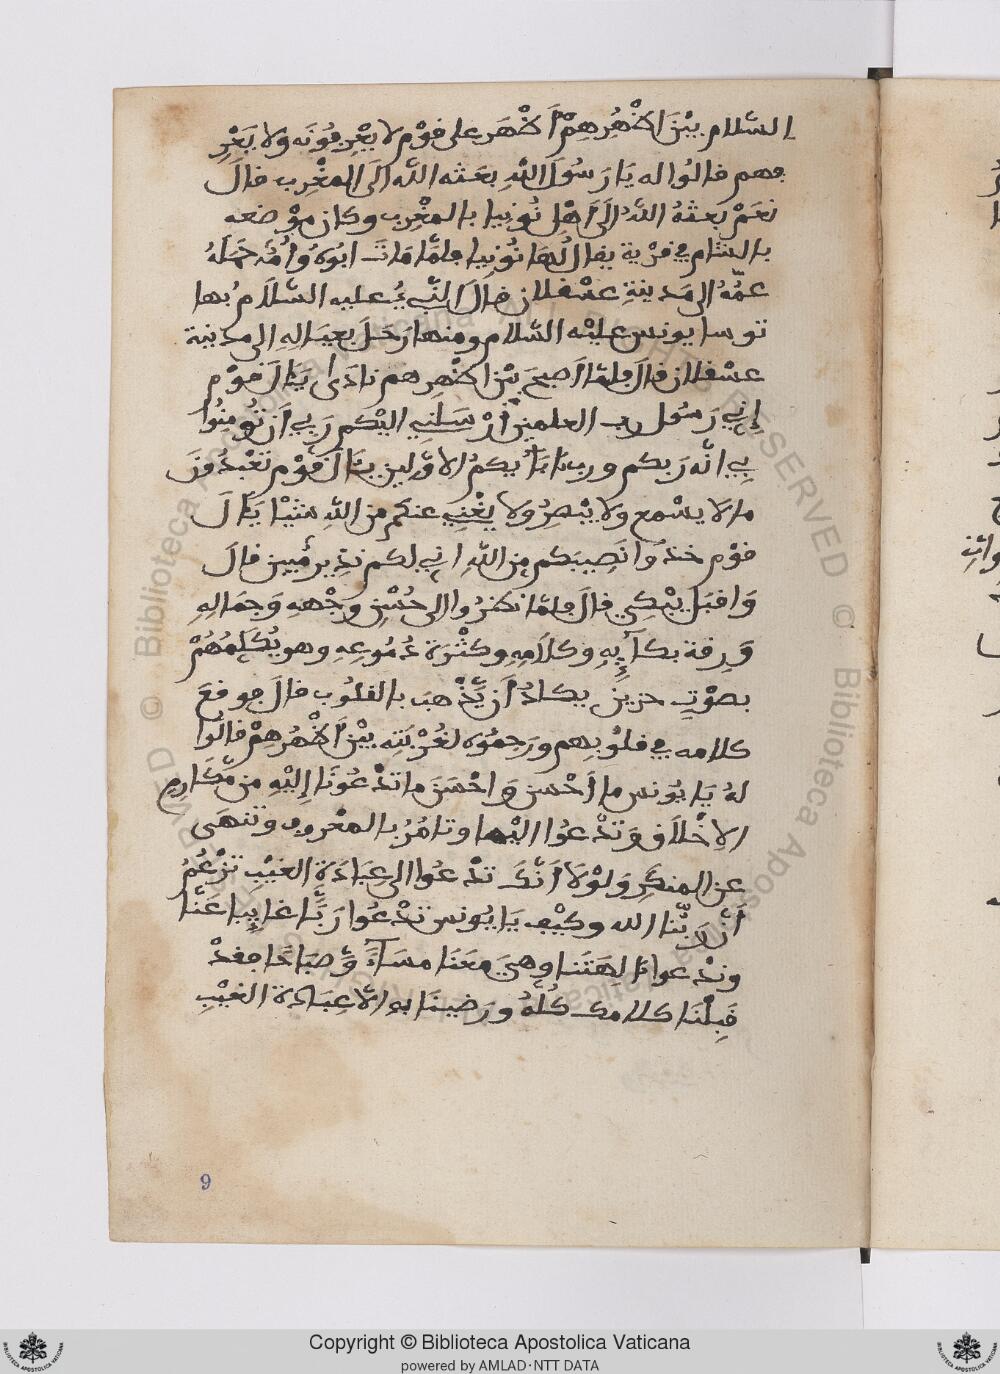 السّلام بيْنَ اظْهُرِهِمْ اَظْهَر على فوْم لا يعْرِفُونَه ولا يَعْرِ
فهم فالُوا له يَا رَسُولَ اللهِ بعَثه اللّه اَلى المغْرِب فالَ
نعَمْ بعثهُ اللّهُ الَى اَهْل نُونِيا بالمغْرِب وكان موْضعه
بالشّام في فرْية يفال لُهَا نُونِيا فلمّا مَاتَ ابُوهُ وَاُمُّه حمَلهُ
عمُّهُ الى مَدينةِ عسْفلان فالَ النّبيُّ عليه السّلاَم بُها
توسا يونس عليْه السّلام ومنها رَحَلَ بعيَالهِ الى مدينة
عسْفلان فال فلمّا اَصبحَ بيْن اظْهرهم نادَى يَالَ فوْم
إنِي رَسُول رب العلمين اَرْسَلنِي اليْكم رَبي اَن تُومنُوا
بِي انّه رَبكم ورب ءابَايِكمُ الاوّلين يالَ فوْم تعْبدُونَ
ما لا يسْمع ولا يبْصرُ ولا يغْنِي عنكم من اللهِ شيْا يَالَ
فوْم خذُوا نَصِيبَكم مِن اللهِ انِي لكم نذِير مُّبِين فالَ
وَافبَل يبْكِي فالَ فلمّا نظرُوا الى حُسْنِ وَجْههِ وَجمَالهِ
وَرِفة بكاَيِهِ وَكلاَمِهِ وكثْرَة دُمُوعِهِ وهو يُكَلِّمُهُمْ
بصوْتٍ حزين يكادُ اَن يَّذْهبَ بالفلُوب فالَ فوفعَ
كلامه في فلُوبهم وَرحِمُوه لغُرْبَتِه بيْن اَظْهُرِهِمْ فالُوا
لهُ يَا يُونس ما اَحْسن وَاحْسَنَ ما تدْعُونَا إليْهِ من مّكَارِم
الاِخْلاَف وَتدْعوا اليْها وتامُرُ بالمعْرُوب وتنهَى
عن المنكَرِ وَلوْلاَ اَنّكَ تدْعوا الى عِبَادَة الغيْبِ تزْعُمُ
اَنّ رَبّنا الله وكيْف يَا يُونس تدْعُوا رَبًّا غايِبا عَنّا
وندْعوا ءالِهَتَنا وهيَ معَنَا مسَآءً وَّصَبَاحًا فقدْ
فَبِلْنَا كلامك كُلّهُ ورَضينَا به الاّ عِبَادَة الغيْبِ
9
Copyright © Biblioteca Apostolica Vaticana
powered by AMLAD·NTT DATA